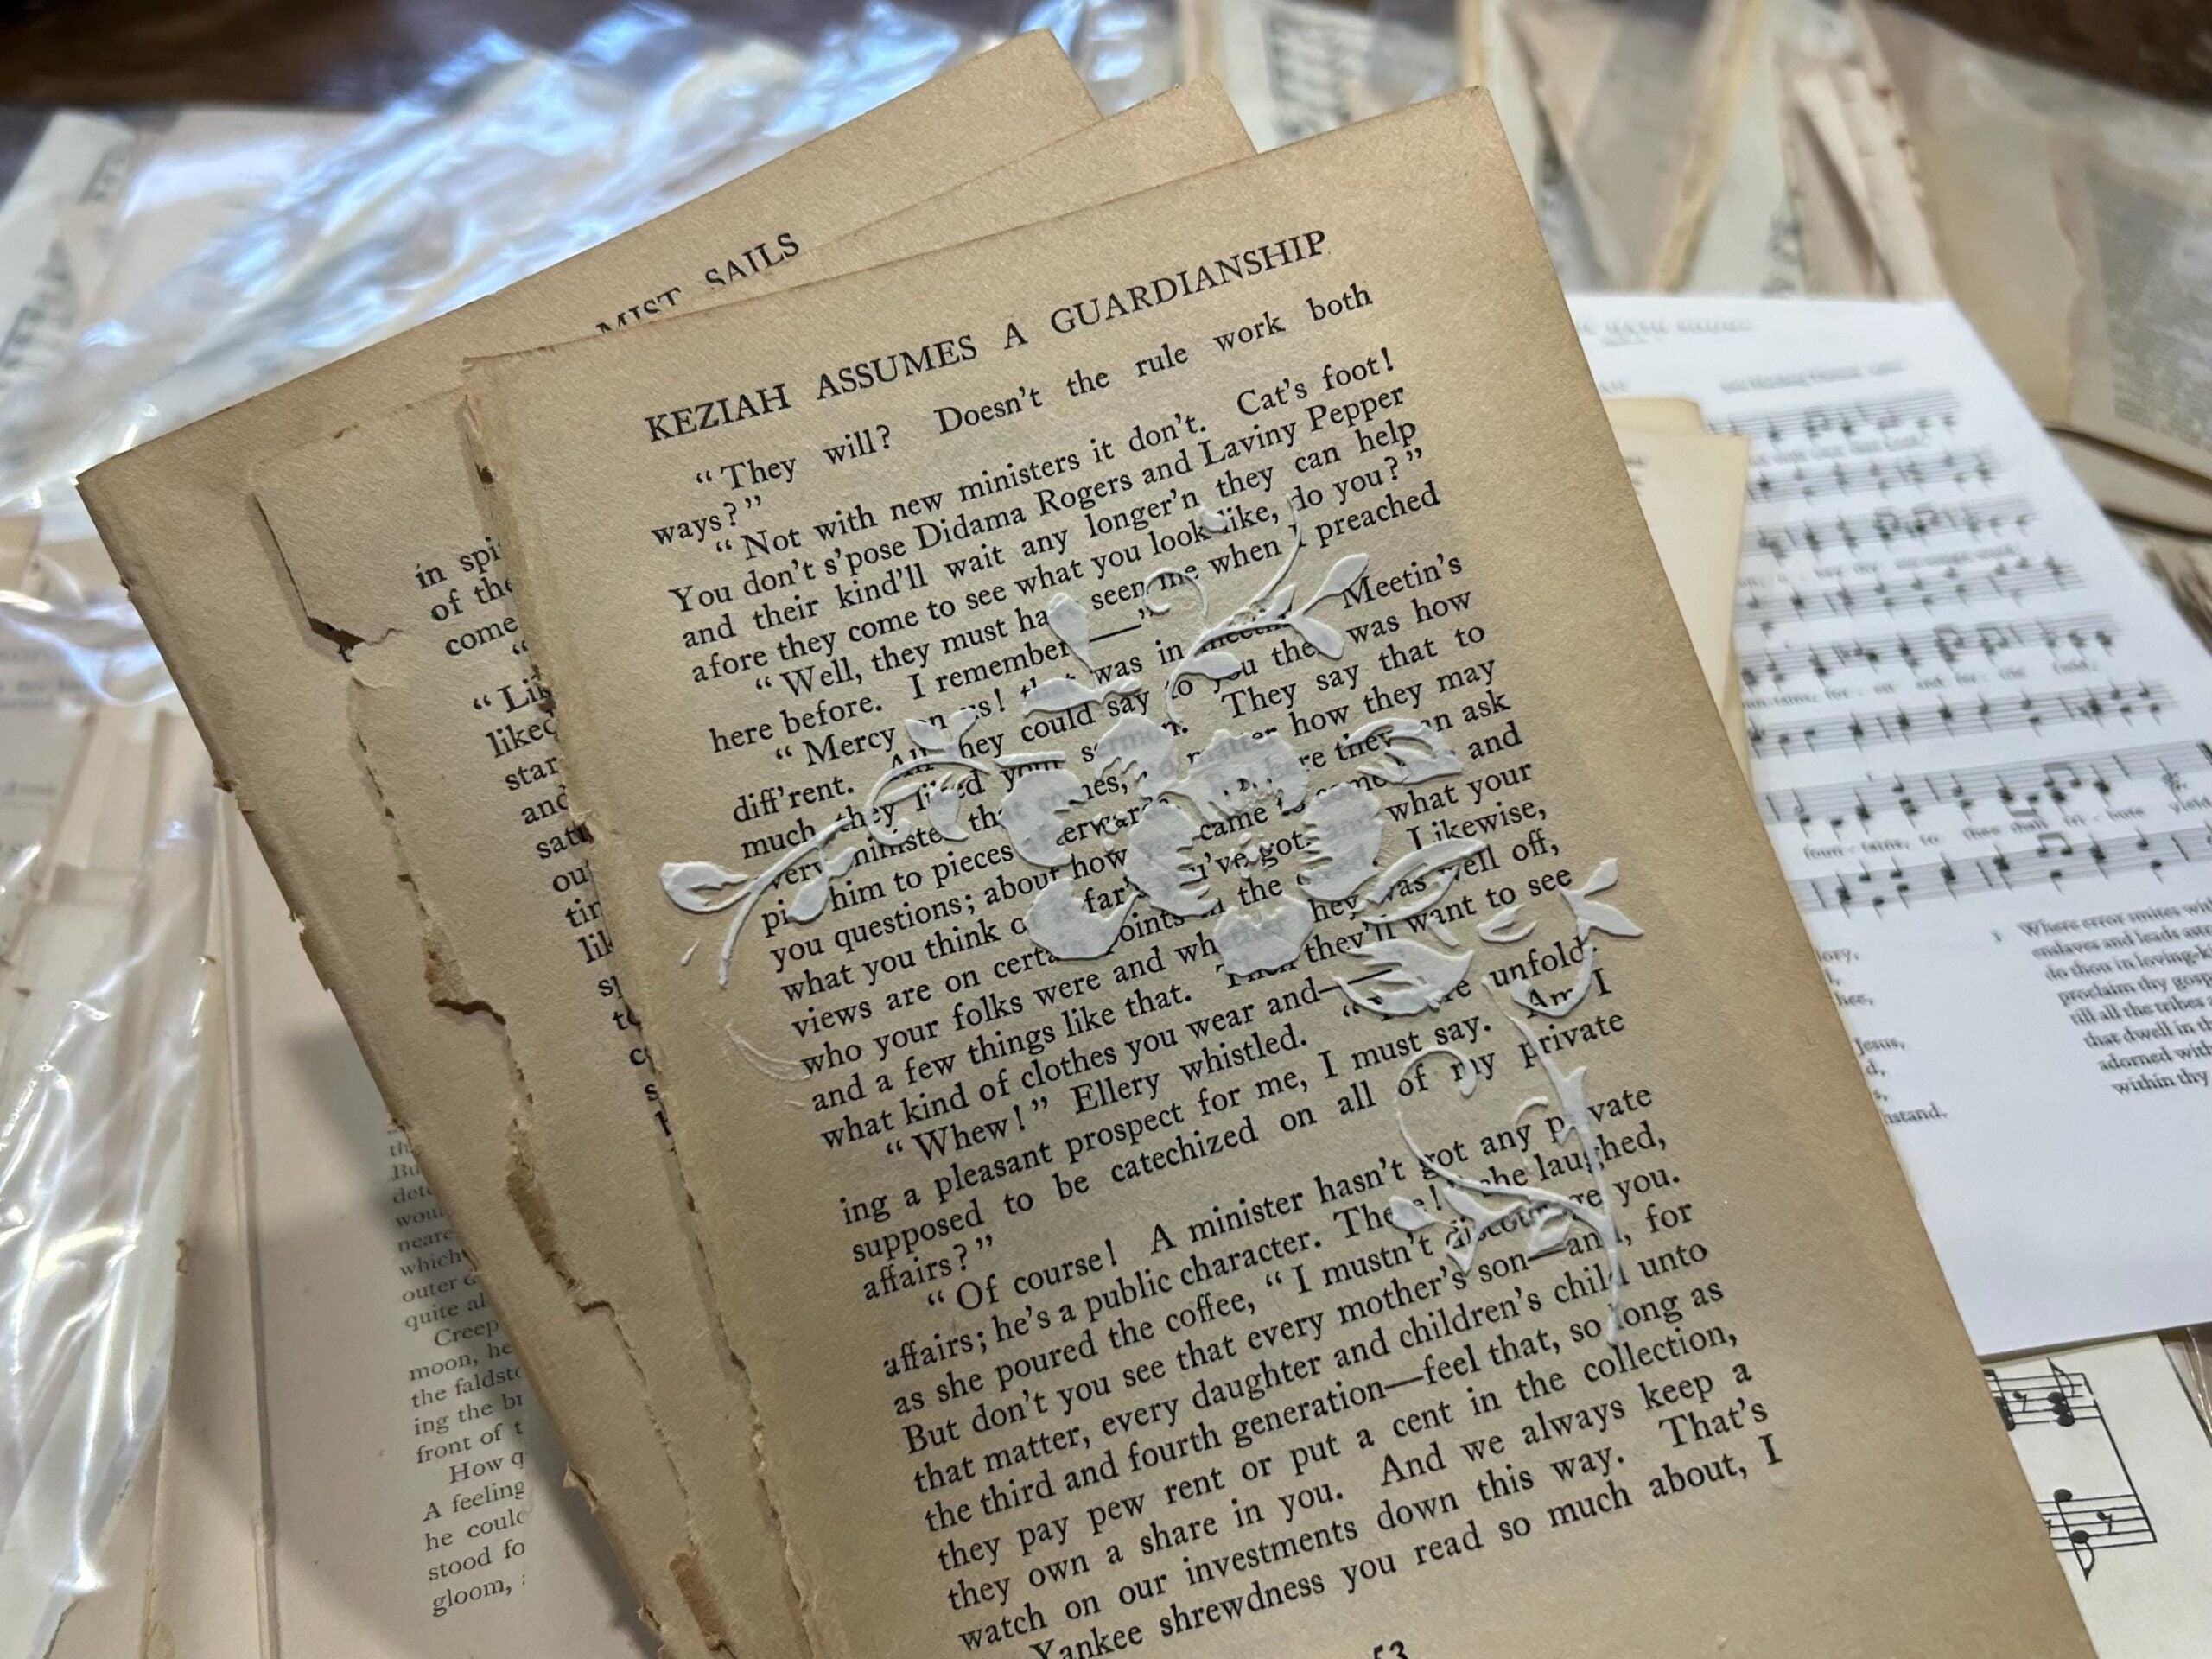 MIST SAILS
KEZIAH ASSUMES A GUARDIANSHIP
“They will? Doesn’t the rule work both
ways?”
“Not with new ministers it don’t. Cat’s foot!
You don’t s’pose Didama Rogers and Laviny Pepper
and their kind’ll wait any longer’n they can help
afore they come to see what you look like, do you?”
“Well, they must ha seen me when I preached
here before. I remember——”
“Mercy on us! that was in meetin’. Meetin’s
diff’rent. All they could say to you then was how
much they liked your sermon. They say that to
every minister that comes, no matter how they may
pick him to pieces afterwards. Here they can ask
you questions; about how you came to come and
what you think o far’s you’ve got, and what your
views are on certain points in the Likewise,
who your folks were and wh they was well off,
and a few things like that. Then they’ll want to see
what kind of clothes you wear and——”
“Whew!” Ellery whistled. “You’re unfold-
ing a pleasant prospect for me, I must say. Am I
supposed to be catechized on all of my private
affairs?”
“Of course! A minister hasn’t got any private
affairs; he’s a public character. There!” she laughed,
as she poured the coffee, “I mustn’t discourage you.
But don’t you see that every mother’s son—and, for
that matter, every daughter and children’s child unto
the third and fourth generation—feel that, so long as
they pay pew rent or put a cent in the collection,
they own a share in you. And we always keep a
watch on our investments down this way. That’s
Yankee shrewdness you read so much about, I
53
in spi
of the
come
“Li
liked
star
and
sat
ou
tin
lik
sp
to
c
s
th
But
dete
woul
neare
which
outer
quite al
Creep
moon, he
the faldst
ing the br
front of t
How q
A feeling
he could
stood fo
gloom,
foun - tains, to thee shall tri - bute yield
lory,
hee,
Jesus,
d,
nstand.
3 Where error smites wit
enslaves and leads astr
do thou in loving-k
proclaim thy gosp
till all the tribes
that dwell in t
adorned with
within thy